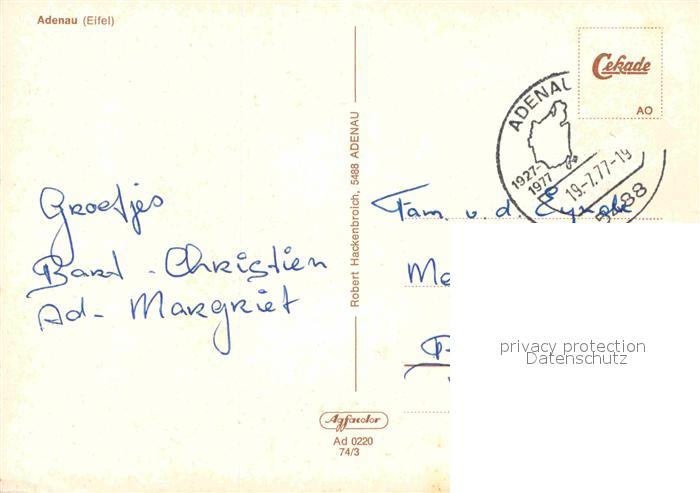 Adenau (Eifel)
Cekade
AO
ADENAU
1927-
1977
19.-7.77-19
5488
Robert Hackenbroich, 5488 ADENAU
Groetjes
Bart - Christien
Ad - Margriet
Fam. v. d.
privacy protection
Datenschutz
Agfacolor
Ad 0220
74/3